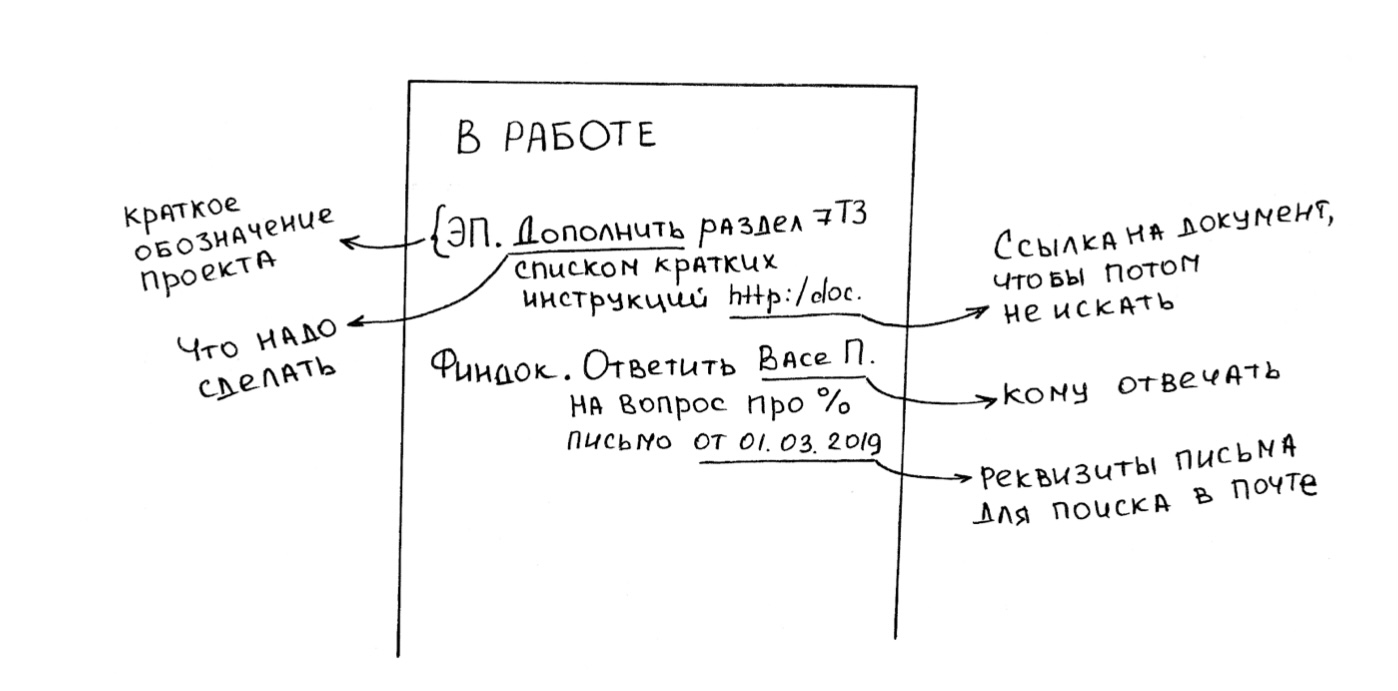 В РАБОТЕ
краткое
обозначение
проекта
{ЭП. Дополнить раздел 7ТЗ
списком кратких
инструкций http:/doc.
Ссылка на документ,
чтобы потом
не искать
Что надо
сделать
Финдок. Ответить Васе П.
на вопрос про %
письмо от 01.03.2019
кому отвечать
реквизиты письма
для поиска в почте